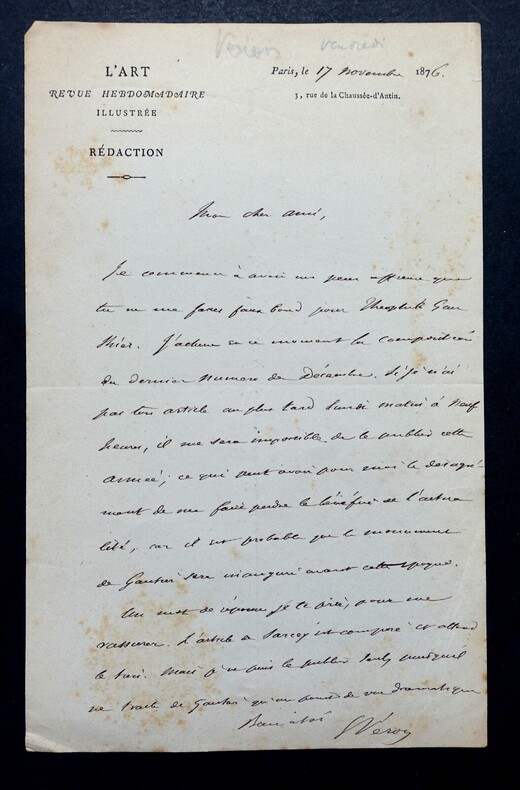 Veron vendredi
L'ART
REVUE HEBDOMADAIRE
ILLUSTRÉE
RÉDACTION
Paris, le 17 novembre 1876.
3, rue de la Chaussée-d'Antin.
Mon cher ami,
Je commence à avoir un peu que
tu ne me fasses faux bond pour Théophile Gau
thier. J'achève en ce moment la composition
du dernier numéro de Décembre. Si je n'ai
pas ton article au plus tard lundi matin à neuf
heures, il me sera impossible de le publier cette
année; ce qui peut avoir pour moi le désagré-
ment de me faire perdre le bénéfice de l'actua
lité, car il est probable que le monument
de Gautier sera inauguré avant cette époque.
Un mot de réponse je te prie, pour me
rassurer. L'article de Sarcey est composé et attend
le tien. Mais je ne puis le publier seul puisqu'il
ne traite de Gautier qu'au point de vue dramatique
Bien à toi
Véron